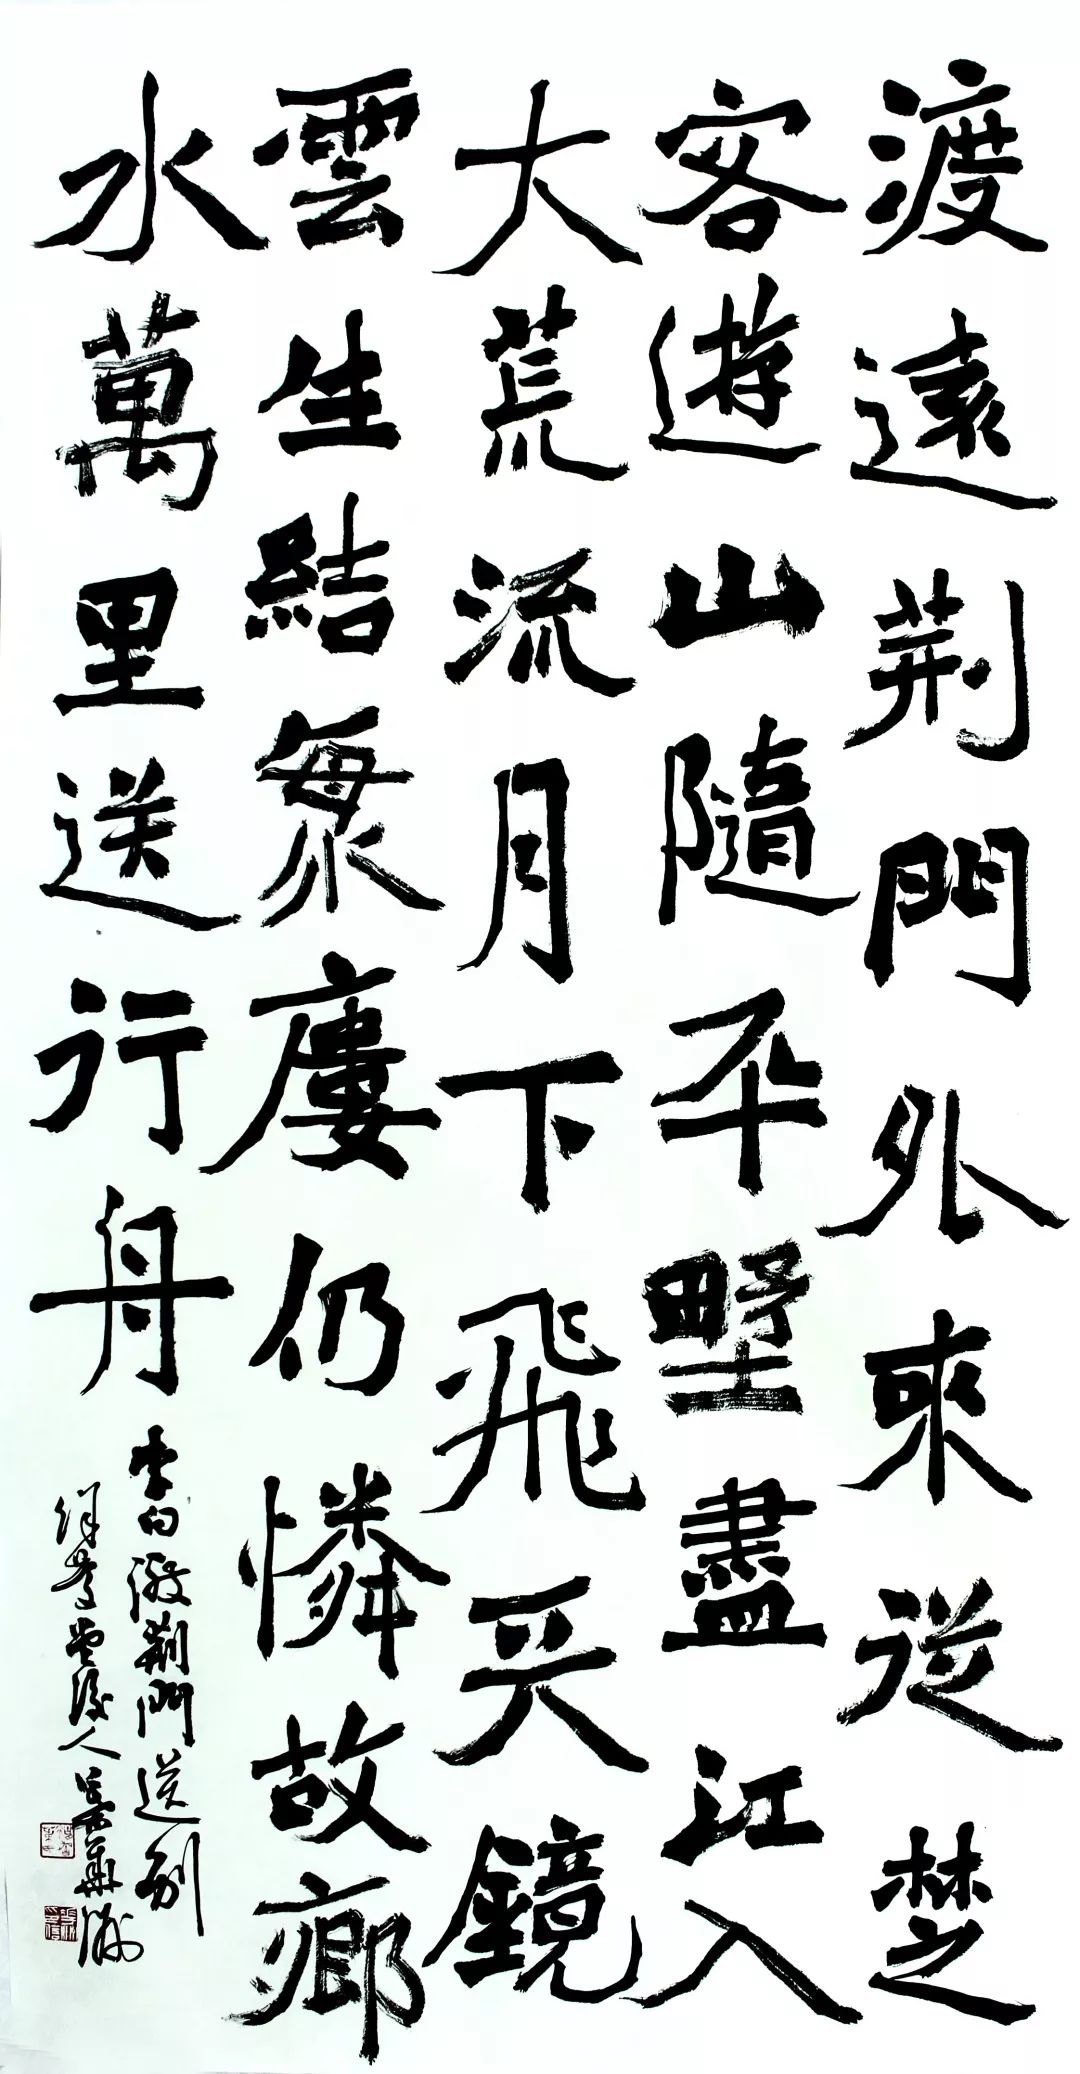 渡遠荆門外來從楚
客遊山隨平墅盡江入
大荒流月下飛天鏡
雲生結海廔仍憐故鄉
水萬里送行舟
李白渡荆門送别